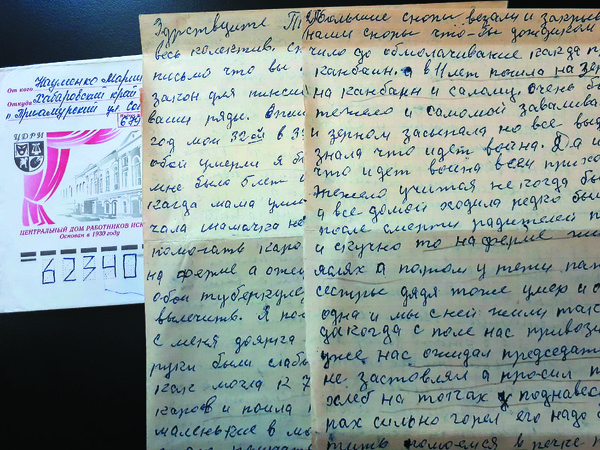 От кого Науменко Марии
Откуда Хабаровский край
п. Приамурский ул Со
679
ЦДРИ
ЦЕНТРАЛЬНЫЙ ДОМ РАБОТНИКОВ ИСК
Основан в 1930 году
62340
Здраствуйте
весь колектив.
письмо что вы
закон для пинси
ваши ряды.
год мой 32 ой в 33
обои умерли я б
мне было 5 лет
кагда мама уме
чала
помогать каро
на ферме а оте
обои туберкулё
вылечить. Я по
с меня доярка
руки были слаб
как могла к 7
каров и поила
маленькие в мо
большие снопы везали и
нами снопы что-бы дождиком
чило до обмолачивание кагда п
канбаин. в 11 лет пошла на зер
на канбаин и салому очень б
тежело и саломой завалива
и зерном засыпала но все выд
знала что идет война. Да и
что идет война всем прихо
тежело учитая не когда бы
а все домой ходила редко бы
после смерти радителей п
и скучно то на ферме жи
яслях а потом у тети пап
сестры дядя тоже умер и о
одна и мы с ней жили так
да когда с поле нас привози
уже нас ожидал председат
не заставлял а просил п
хлеб на тотках у поднавес
рах сильно горел его надо б
тить помоемся в речке п